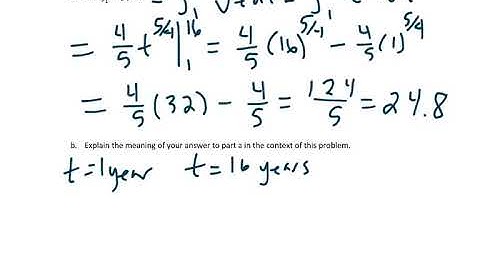 = 4/5 t^5/4 |_1^16 = 4/5 (16)^5/4 - 4/5 (1)^5/4
= 4/5 (32) - 4/5 = 124/5 = 24.8
b. Explain the meaning of your answer to part a in the context of this problem.
t=1 year t=16 years